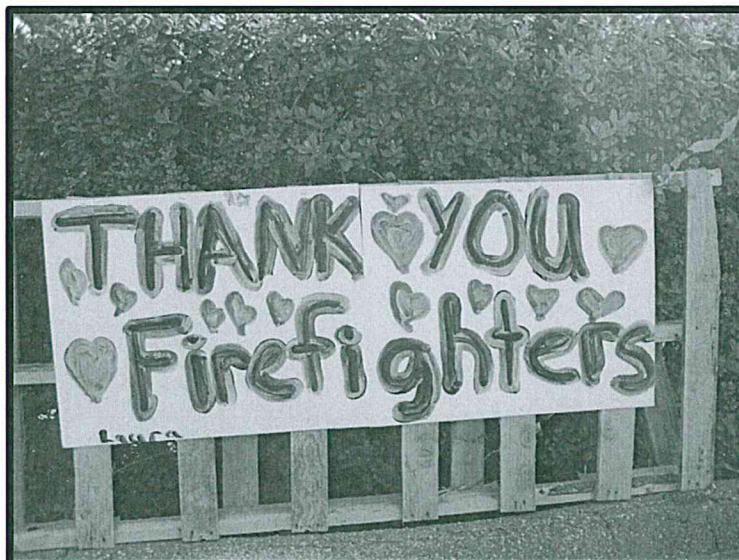 THANK YOU
Firefighters
Laura